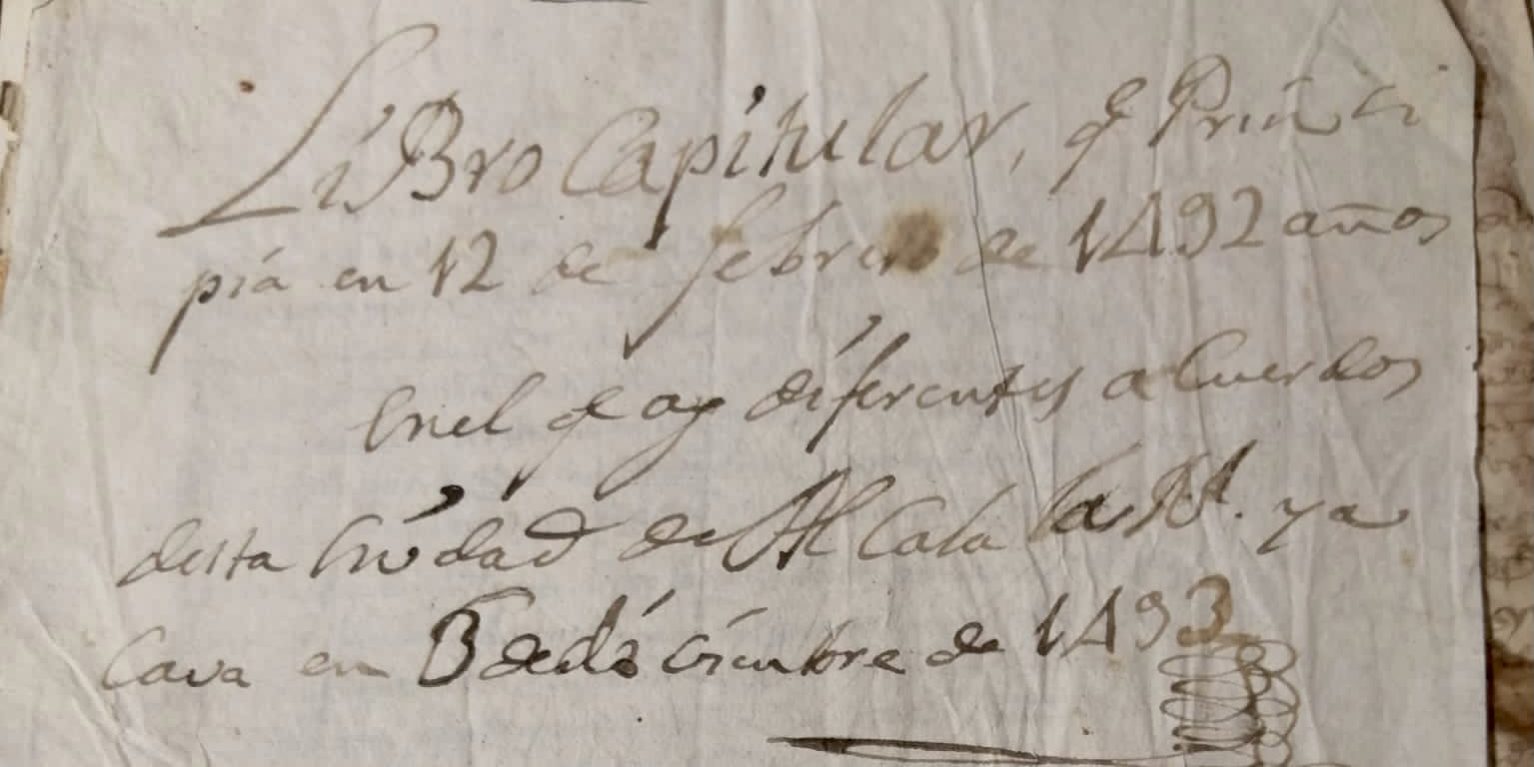 LiBro Capitular, q Princi
pia en 12 de febrero de 1492 años
Enel q ay diferentes aCuerdos
desta Ciudad de AlCala la Rl. ya
Cava en 5 de diciembre de 1493